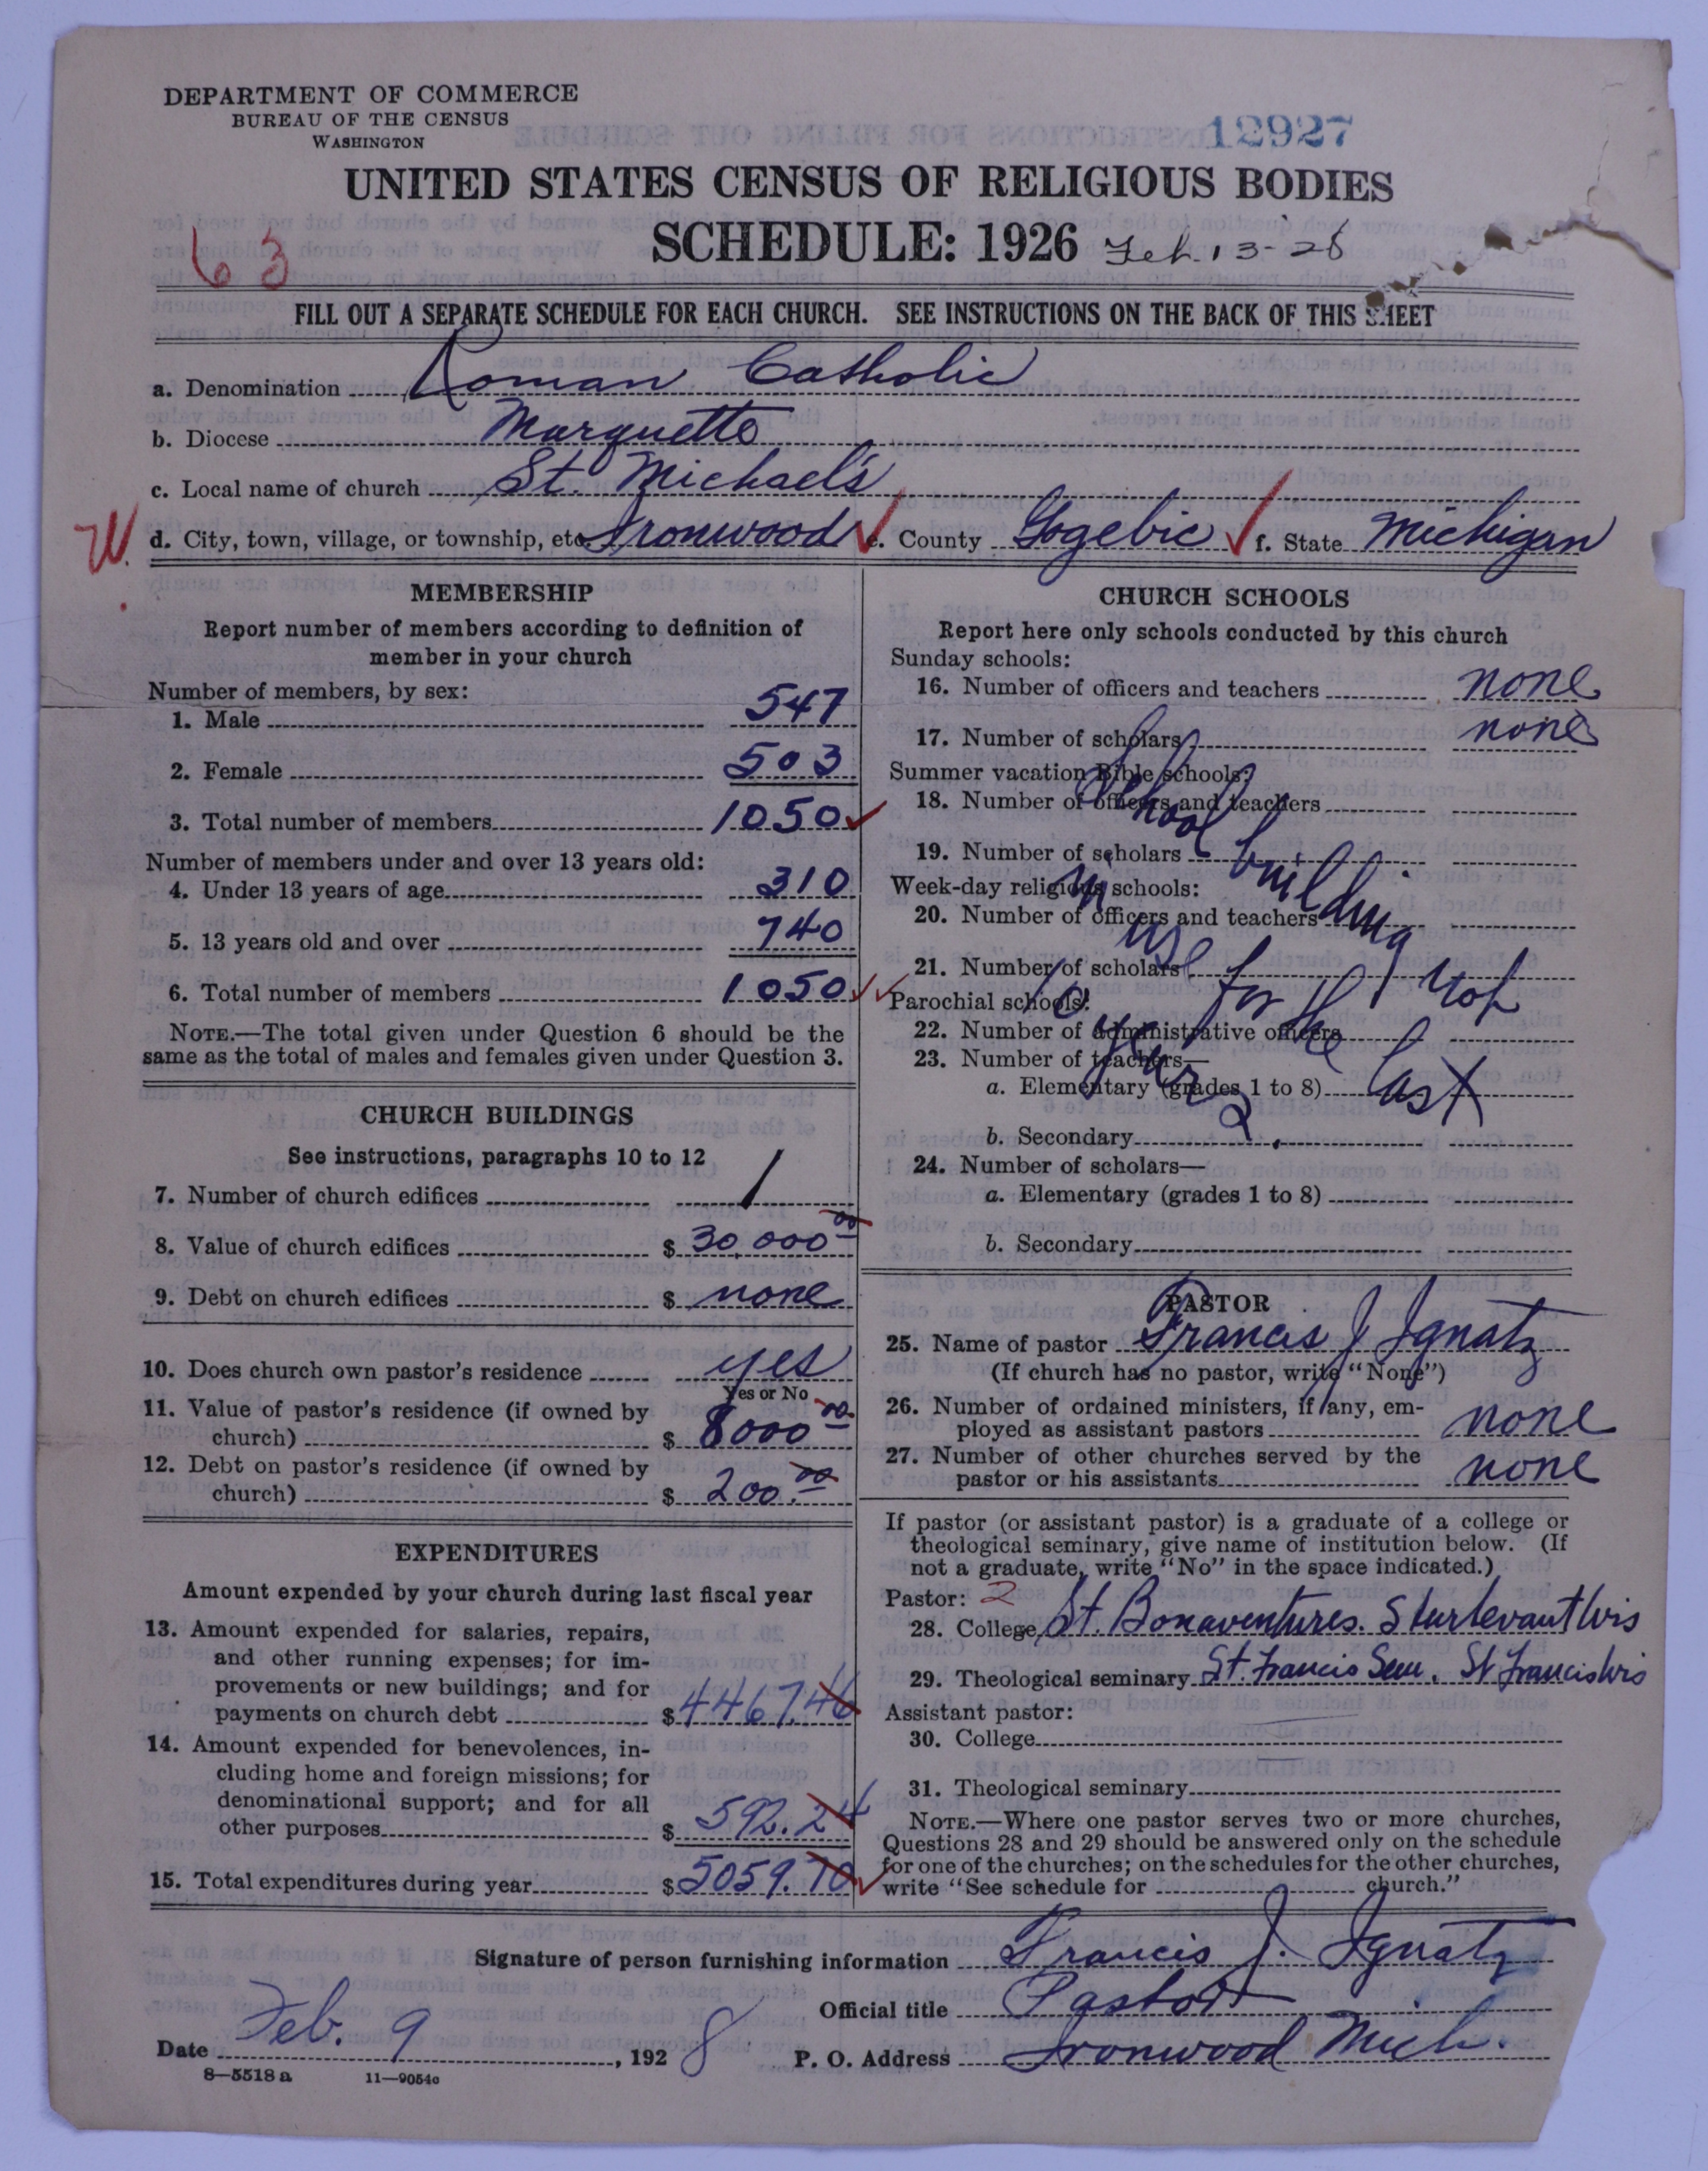 DEPARTMENT OF COMMERCE
BUREAU OF THE CENSUS
WASHINGTON
12927
UNITED STATES CENSUS OF RELIGIOUS BODIES
SCHEDULE: 1926 Feb. 13-28
63
FILL OUT A SEPARATE SCHEDULE FOR EACH CHURCH. SEE INSTRUCTIONS ON THE BACK OF THIS SHEET
a. Denomination Roman Catholic
b. Diocese Marquette
c. Local name of church St. Michael's
W. d. City, town, village, or township, etc. Ironwood e. County Gogebic f. State Michigan
MEMBERSHIP
Report number of members according to definition of
member in your church
Number of members, by sex:
1. Male 547
2. Female 503
3. Total number of members 1050
Number of members under and over 13 years old:
4. Under 13 years of age 310
5. 13 years old and over 740
6. Total number of members 1050
NOTE.—The total given under Question 6 should be the
same as the total of males and females given under Question 3.
CHURCH BUILDINGS
See instructions, paragraphs 10 to 12
7. Number of church edifices 1
8. Value of church edifices $ 30,000 00
9. Debt on church edifices $ none
10. Does church own pastor's residence yes
Yes or No
11. Value of pastor's residence (if owned by
church) $ 8000 00
12. Debt on pastor's residence (if owned by
church) $ 200.00
EXPENDITURES
Amount expended by your church during last fiscal year
13. Amount expended for salaries, repairs,
and other running expenses; for im-
provements or new buildings; and for
payments on church debt $ 4467.46
14. Amount expended for benevolences, in-
cluding home and foreign missions; for
denominational support; and for all
other purposes $ 592.24
15. Total expenditures during year $ 5059.70
CHURCH SCHOOLS
Report here only schools conducted by this church
Sunday schools:
16. Number of officers and teachers none
17. Number of scholars none
Summer vacation Bible schools:
18. Number of officers and teachers
19. Number of scholars
Week-day religious schools:
20. Number of officers and teachers
21. Number of scholars
Parochial schools:
22. Number of administrative officers
23. Number of teachers—
a. Elementary (grades 1 to 8)
b. Secondary
24. Number of scholars—
a. Elementary (grades 1 to 8)
b. Secondary
School building not
in use for the last
10 years.
PASTOR
25. Name of pastor Francis J Ignatz
(If church has no pastor, write "None")
26. Number of ordained ministers, if any, em-
ployed as assistant pastors none
27. Number of other churches served by the
pastor or his assistants none
If pastor (or assistant pastor) is a graduate of a college or
theological seminary, give name of institution below. (If
not a graduate, write "No" in the space indicated.)
Pastor: 2
28. College St. Bonaventures. Sturtevant Wis
29. Theological seminary St. Francis Sem. St Francis Wis
Assistant pastor:
30. College
31. Theological seminary
NOTE.—Where one pastor serves two or more churches,
Questions 28 and 29 should be answered only on the schedule
for one of the churches; on the schedules for the other churches,
write "See schedule for church."
Signature of person furnishing information Francis J. Ignatz
Official title Pastor
Date Feb. 9, 1928 P. O. Address Ironwood Mich.
8—5518 a 11—9054c